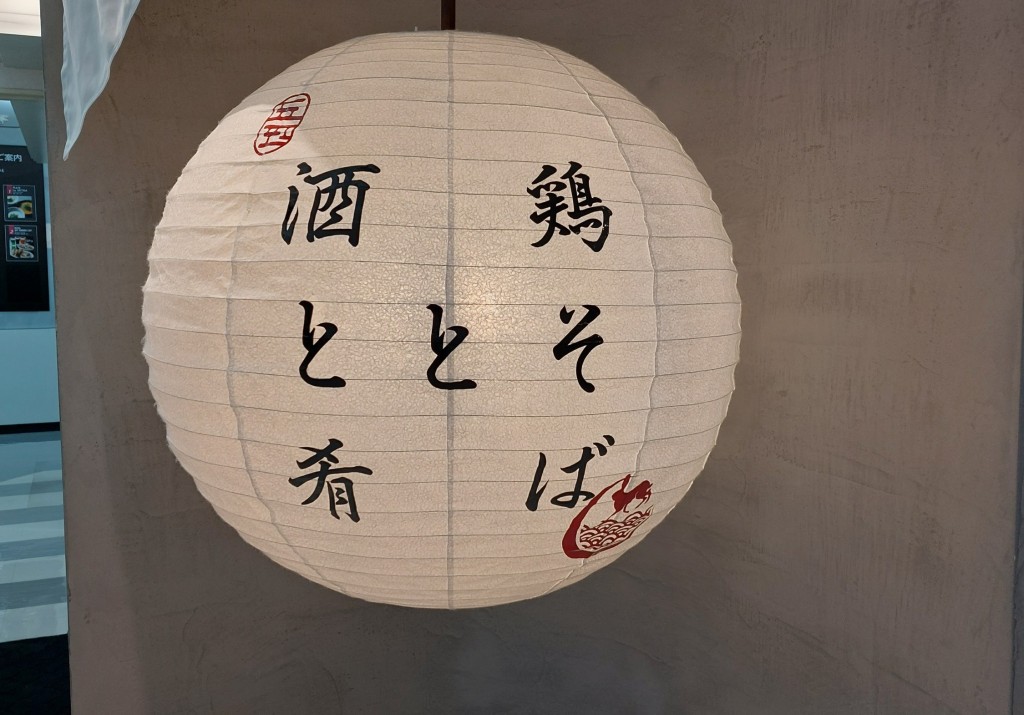 鶏そば
と
酒と肴
ご案内